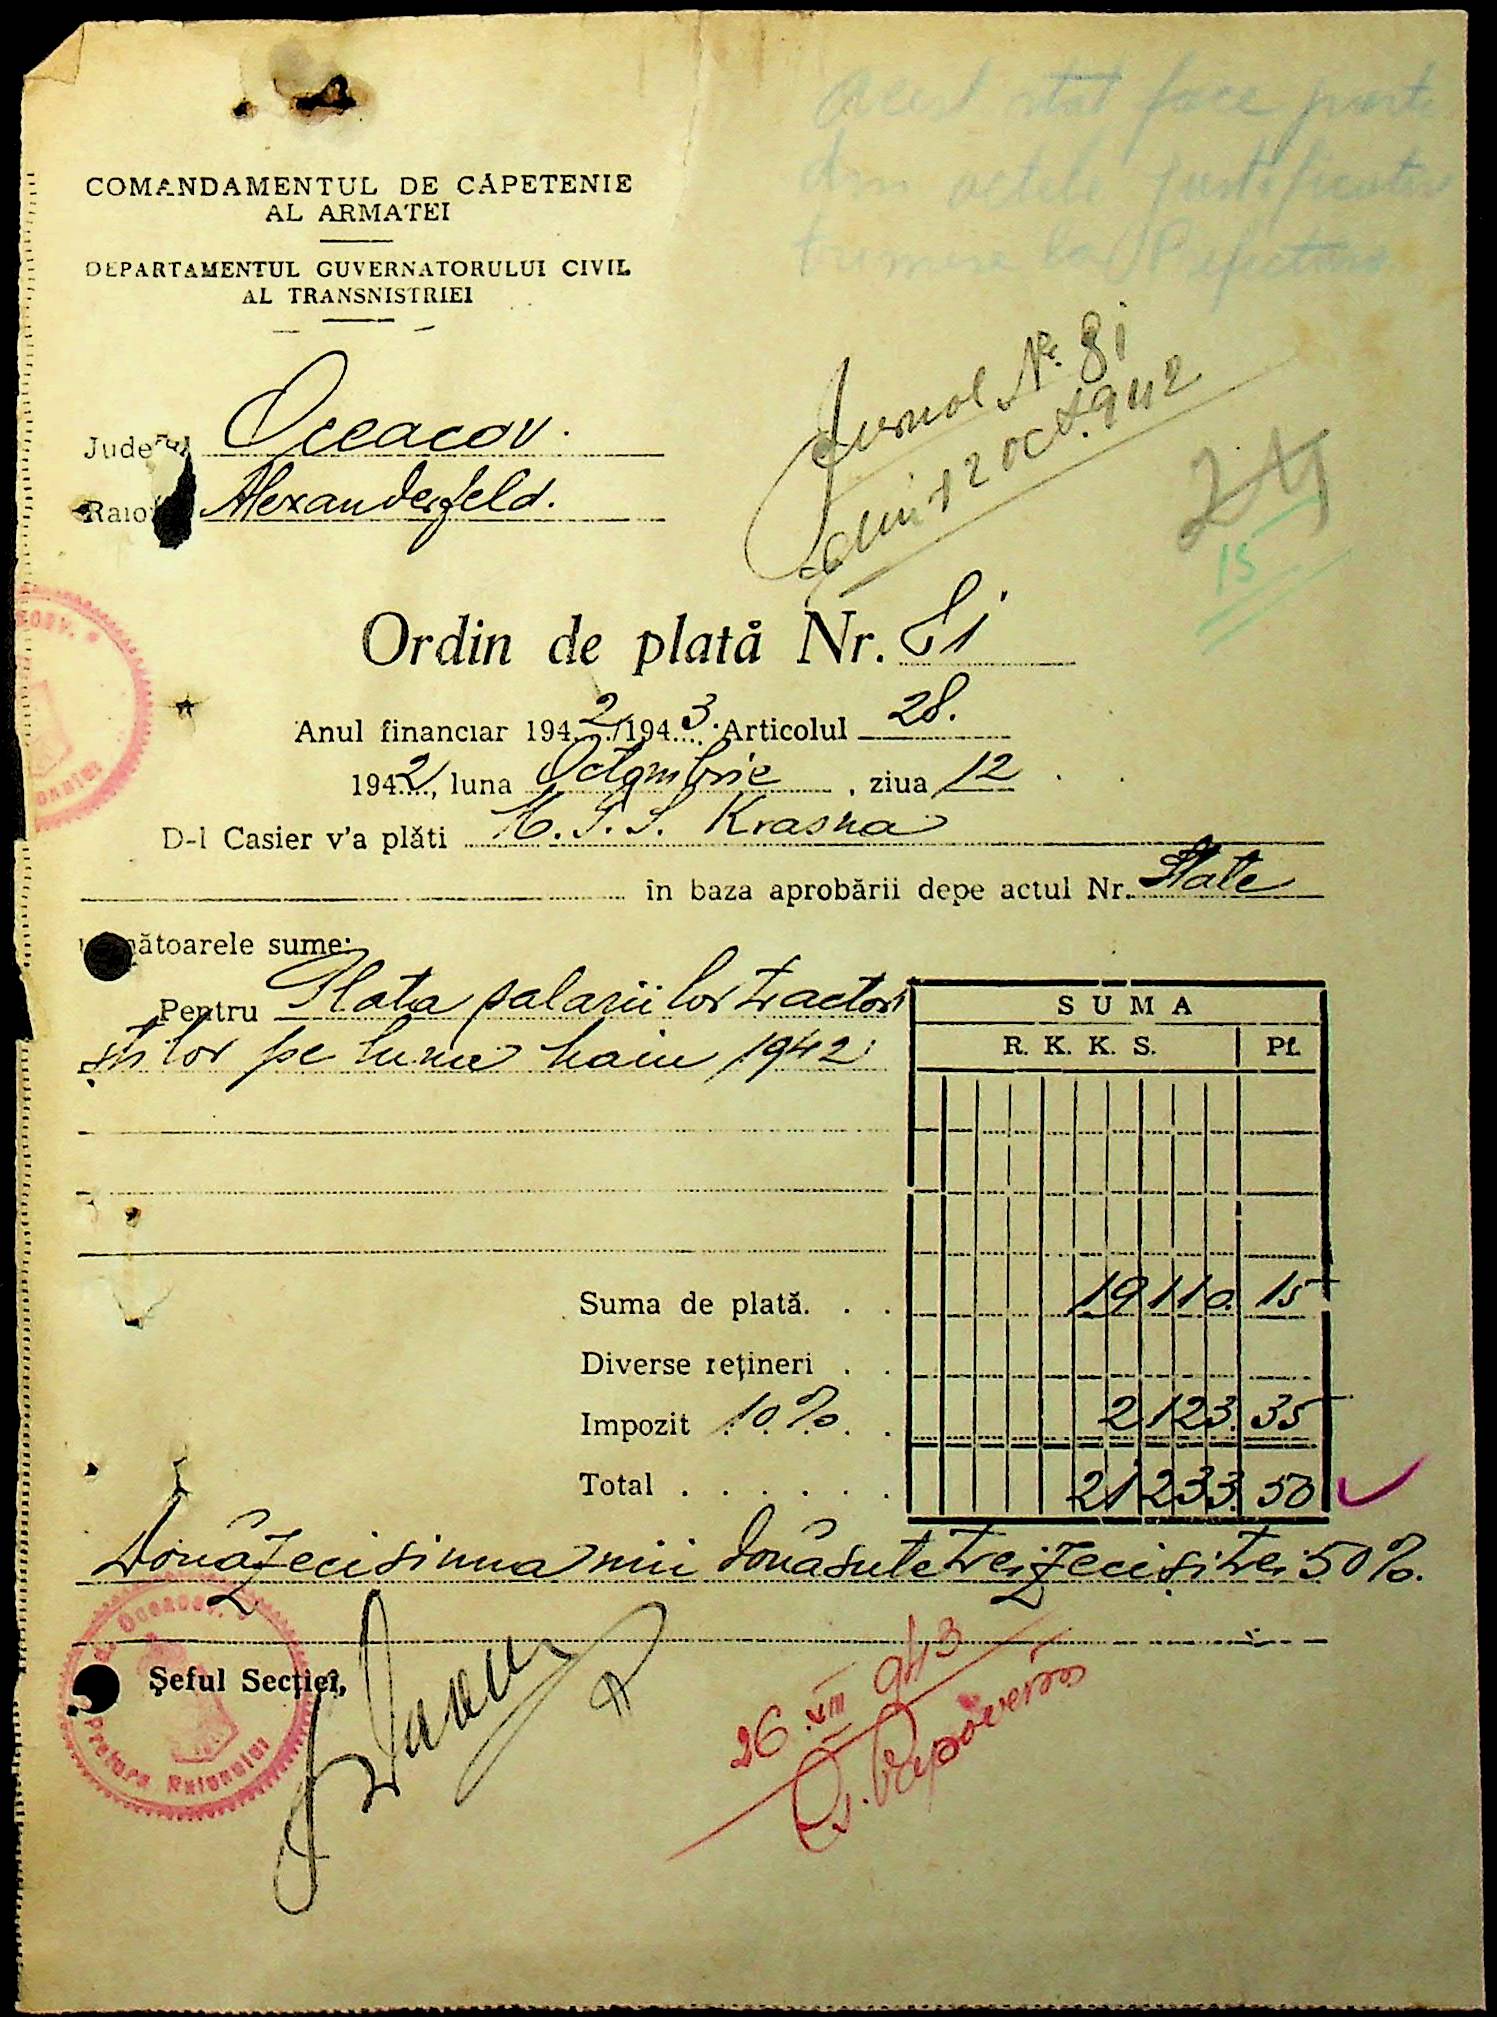 Acest stat face parte
din actele justificative
trimise la Prefectura
COMANDAMENTUL DE CĂPETENIE
AL ARMATEI
DEPARTAMENTUL GUVERNATORULUI CIVIL
AL TRANSNISTRIEI
Județul Oceacov.
Raio Alexanderfeld.
Jurnal Nr. 81
din 12 oct. 942
24
15
Ordin de plată Nr. 81
Anul financiar 1942/1943. Articolul 28.
1942, luna Octombrie, ziua 12
D-l Casier v'a plăti M.T.S. Krasna
în baza aprobării depe actul Nr. State
următoarele sume:
Pentru Plata salariilor tractori
știlor pe luna Maiu 1942
SUMA
R. K. K. S. Pf.
Suma de plată. . . 19110. 15
Diverse rețineri . .
Impozit 10%. . 2123. 35
Total . . . . . . 21233. 50
Douăzeci si una mii două sute treizeci și trei 50%.
Șeful Secției,
26.VIII 943
Oceacov.
Pretura Raionului